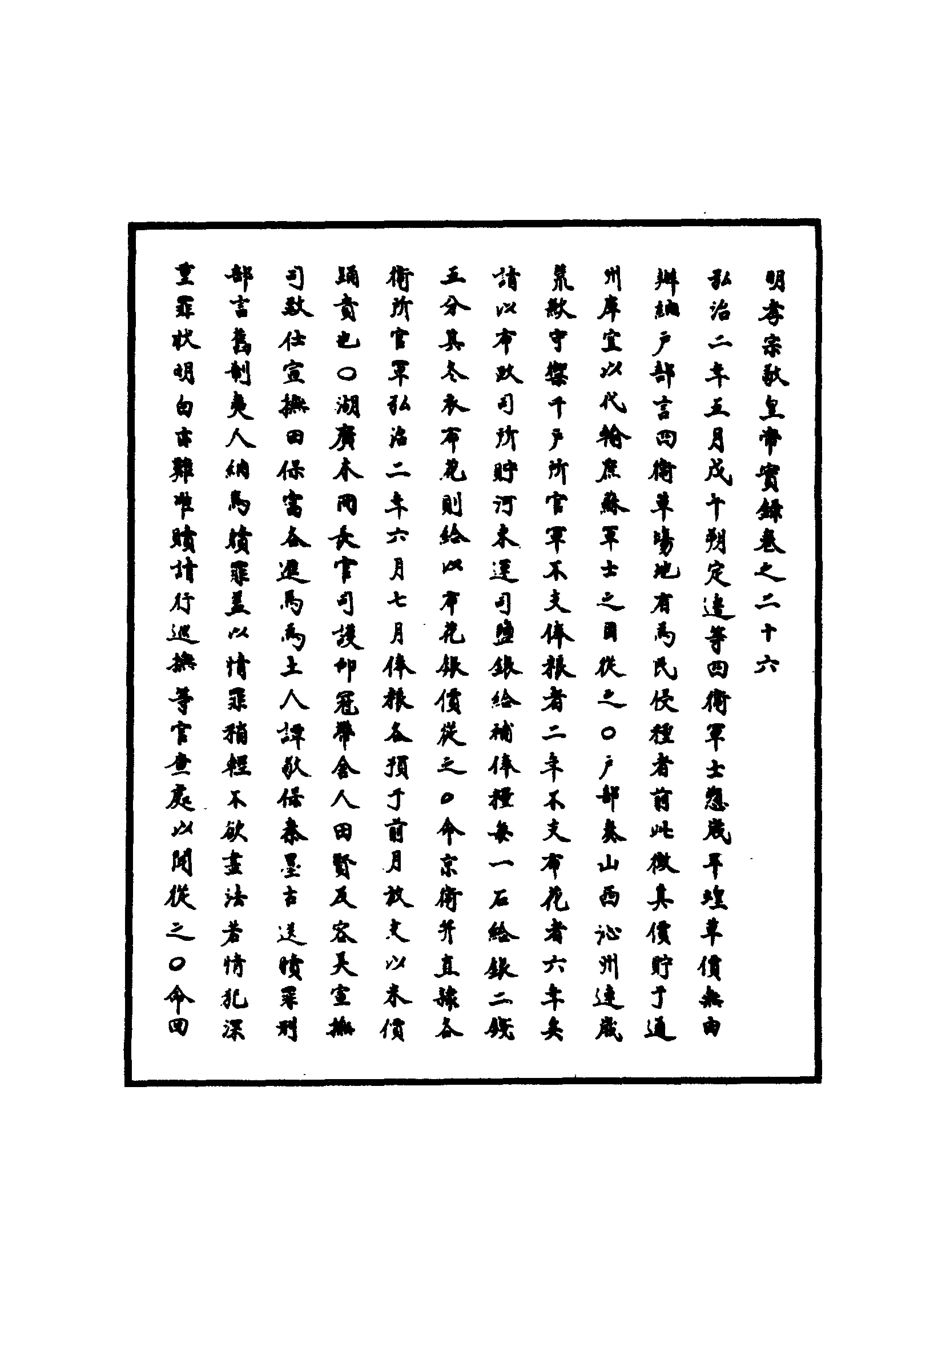 明孝宗敬皇帝實録卷之二十六
弘治二年五月戊午朔定邉等四衛軍士憊歲旱蝗草價無由
辦納戸部言四衛草塲地有為民侵種者前此徴其價貯于通
州庫宜以代輸庶蘇軍士之困從之○戸部奏山西沁州連歲
荒歉守禦千戸所官軍不支俸粮者二年不支布花者六年矣
請以布政司所貯河東運司鹽銀給補俸糧每一石給銀二錢
五分其冬衣布花則給以布花銀價從之○命京衛并直隸各
衛所官軍弘治二年六月七月俸粮各預于前月放支以米價
踊貴也○湖廣木冊長官司護印冠帶舍人田賢及容美宣撫
司致仕宣撫田保富各進馬為土人譚敬保秦墨古送贖罪刑
部言舊制夷人納馬贖罪盖以情罪稍輕不欲盡法若情犯深
重罪狀明白亦難准贖請行巡撫等官查處以聞從之○命田